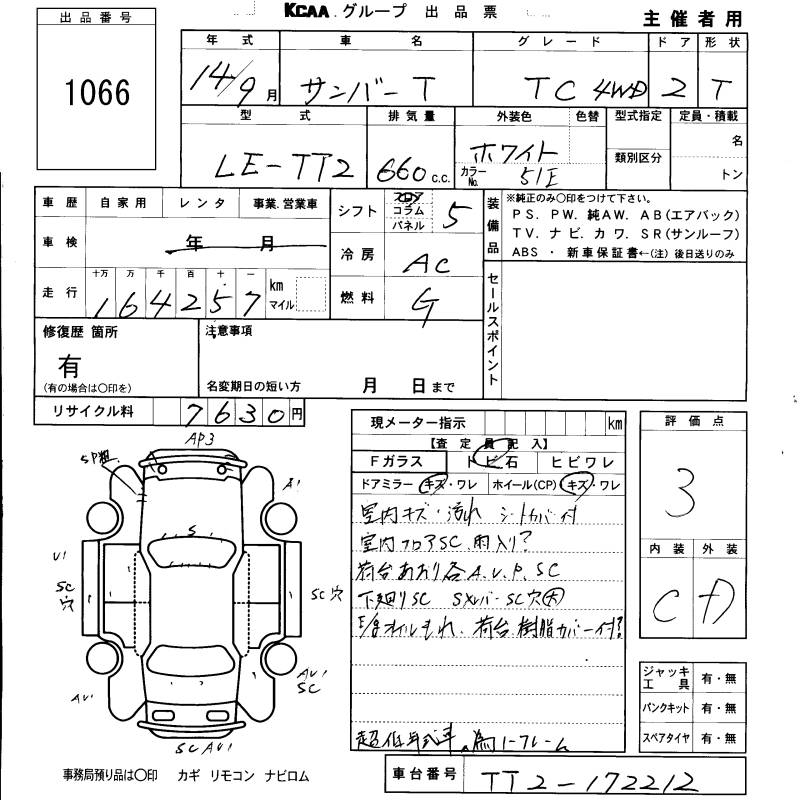 出品番号
1066
KCAA グループ 出品票
主催者用
年式 車名 グレード ドア 形状
14/9月 サンバーT TC 4WD 2 T
型式 排気量 外装色 色替 型式指定 定員・積載
LE-TT2 660 c.c. ホワイト
カラーNo. 51E
類別区分
名
トン
車歴 自家用 レンタ 事業.営業車
車検 年 月
走行 十万 万 千 百 十 一
164257 km マイル
シフト フロア コラム パネル 5
冷房 AC
燃料 G
装備品
※純正のみ〇印をつけて下さい。
PS. PW. 純AW. AB(エアバック)
TV. ナビ. カワ. SR(サンルーフ)
ABS ・ 新車保証書←(注)後日送りのみ
セールスポイント
修復歴 箇所
有
(有の場合は〇印を)
注意事項
名変期日の短い方 月 日まで
リサイクル料 7630円
現メーター指示 km
【査定員記入】
Fガラス トビ石 ヒビワレ
ドアミラー キズ・ワレ ホイール(CP) キズ・ワレ
室内キズ・汚れ シートカバー付
室内フロアSC. 雨入り?
荷台あおり各A.U.P.SC
下廻りSC Sメンバー SC穴大
E/gオイルもれ. 荷台樹脂カバー付
超低年式車. 為ノークレーム
評価点
3
内装 外装
C D
ジャッキ工具 有・無
パンクキット 有・無
スペアタイヤ 有・無
AP3
SP粗
A1
S
U1
SC
穴
SC穴
AU1
AU1
SC
SC AU1
事務局預り品は〇印 カギ リモコン ナビロム
車台番号 TT2-172212